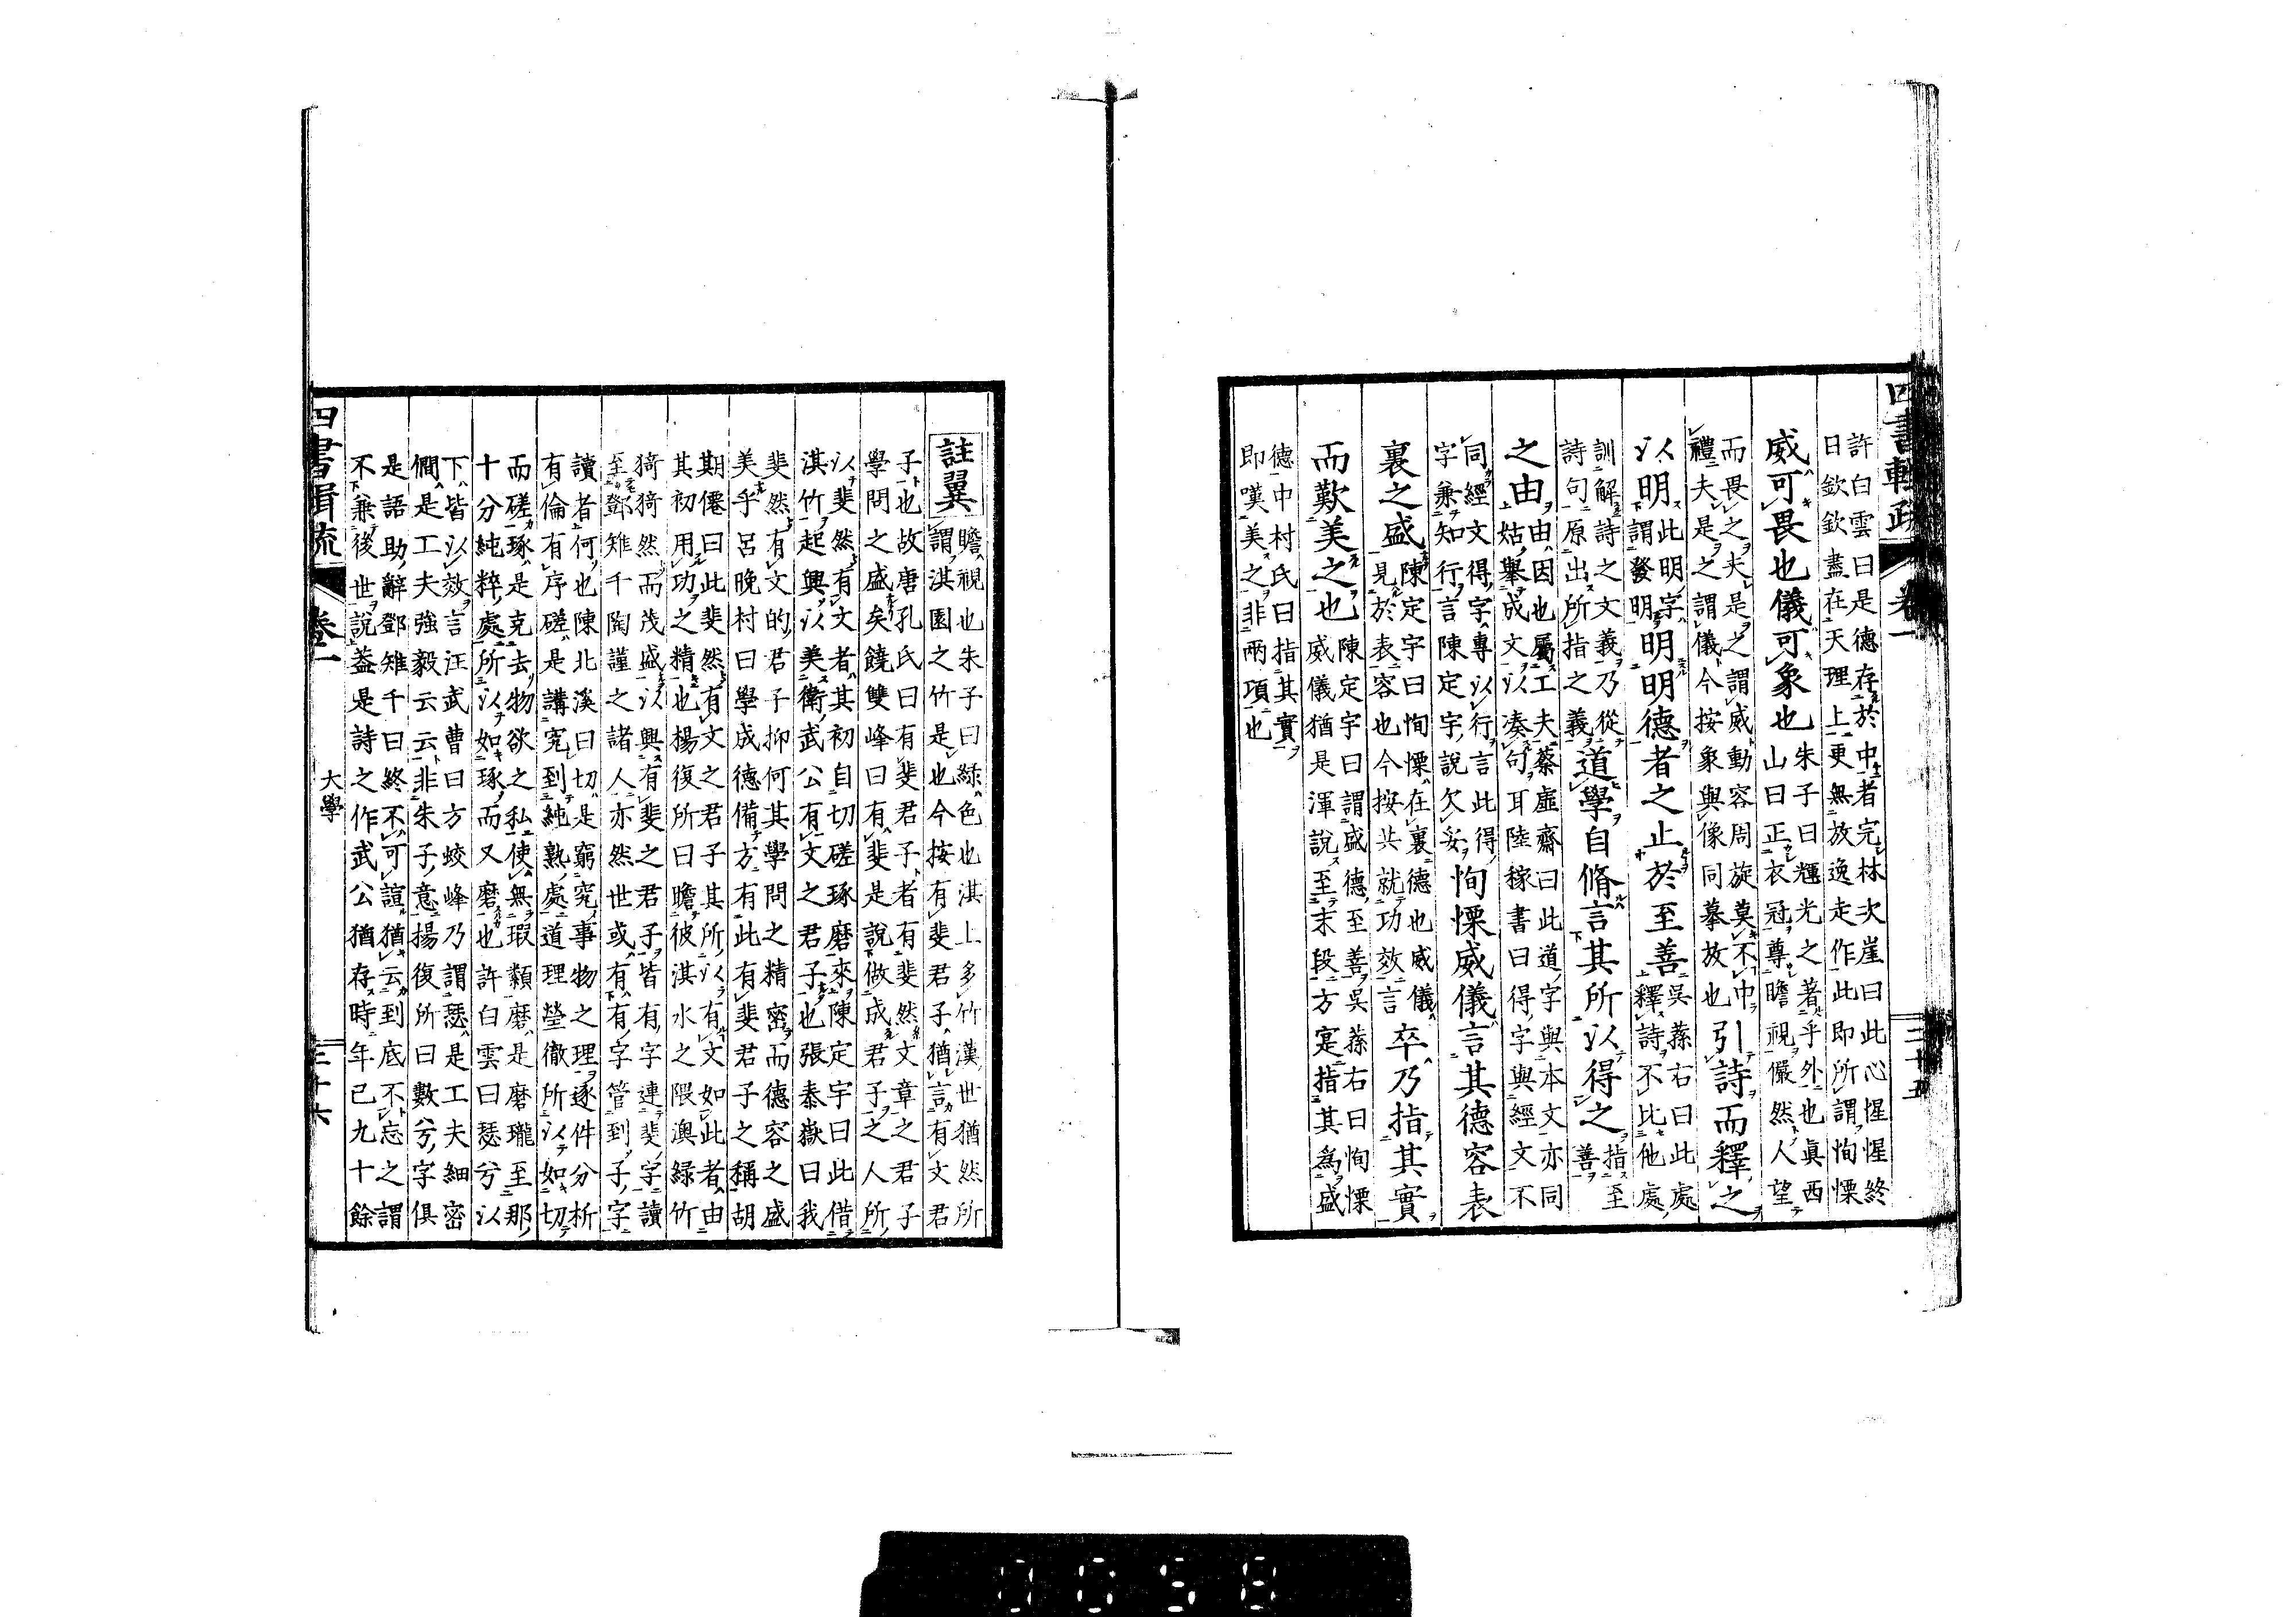 四書輯疏 卷一 三十五
許白雲曰是德存於中者完林次崖曰此心惺惺終
日欽欽盡在天理上更無放逸走作此即所謂恂慄
威可畏也儀可象也
朱子曰輝光之著乎外也眞西
山曰正衣冠尊瞻視儼然人望
而畏之夫是之謂威動容周旋莫不中
禮夫是之謂儀今按象與像同摹放也
引詩而釋之
以明
此明字
謂發明
明明德者之止於至善
吳蓀右曰此處
釋詩不比他處
訓解詩之文義乃從
詩句原出所指之義
道學自脩言其所以得之
指至
善
之由
由因也屬工夫蔡虛齋曰此道字與本文亦同
姑舉成文以湊句耳陸稼書曰得字與經文不
同經文得字專以行言此得
字兼知行言陳定字說欠妥
恂慄威儀言其德容表
裏之盛
陳定宇曰恂慄在裏德也威儀
見於表容也今按共就功效言
卒乃指其實
而歎美之也
陳定宇曰謂盛德至善吳蓀右曰恂慄
威儀猶是渾說至末段方寔指其為盛
德中村氏曰指其實
即嘆美之非兩項也
註翼
瞻視也朱子曰綠色也淇上多竹漢世猶然所
謂淇園之竹是也今按有斐君子猶言有文君
子也故唐孔氏曰有斐君子者有斐然文章之君子
學問之盛矣饒雙峰曰有斐是說做成君子之人所
以斐然有文者其初自切磋琢磨來陳定宇曰此借
淇竹起興以美衛武公有文之君子也張泰嶽曰我
斐然有文的君子抑何其學問之精密而德容之盛
美乎呂晚村曰學成德備方有此有斐君子之稱胡
期僊曰此斐然有文之君子其所以有文如此者由
其初用功之精也楊復所曰瞻彼淇水之隈澳綠竹
猗猗然而茂盛以興有斐之君子皆有字連斐字讀
至鄧雉千陶謹之諸人亦然世或有有字管到子字
讀者何也陳北溪曰切是窮究事物之理逐件分析
有倫有序磋是講究到純熟處道理瑩徹所以如切
而磋琢是克去物欲之私使無瑕纇磨是磨瓏至那
十分純粹處所以如琢而又磨也許白雲曰瑟兮以
下皆以效言汪武曹曰方蛟峰乃謂瑟是工夫細密
僩是工夫強毅云云非朱子意楊復所曰數兮字俱
是語助辭鄧雉千曰終不可諠猶云到底不忘之謂
不兼後世說蓋是詩之作武公猶存時年已九十餘
四書輯疏 卷一 大學 三十六
0058